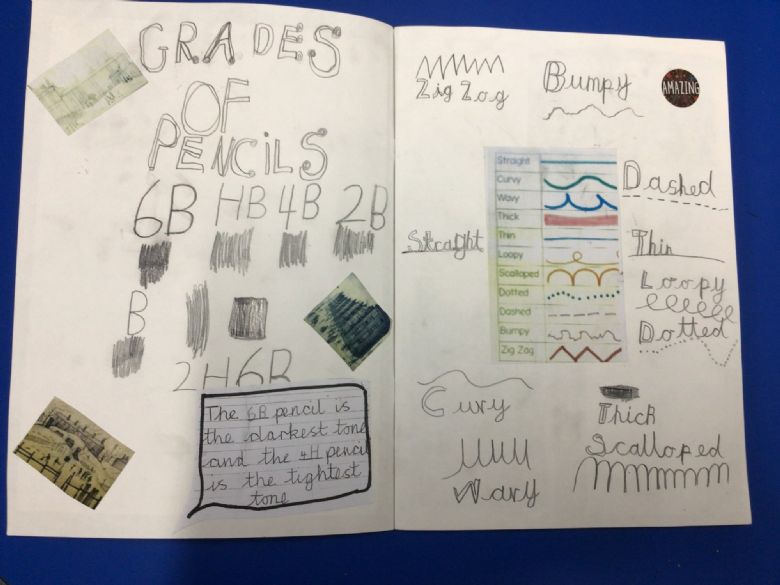 GRADES
OF
PENCiLS
6B HB 4B 2B
B
2H 6B
The 6B pencil is
the darkest tone
and the 4H pencil
is the lightest
tone
Zig Zag
Bumpy
AMAZING
Straight
Curvy
Wavy
Thick
Thin
Loopy
Scalloped
Dotted
Dashed
Bumpy
Zig Zag
Straight
Dashed
Thin
Loopy
Dotted
Curvy
Thick
Scalloped
Wavy